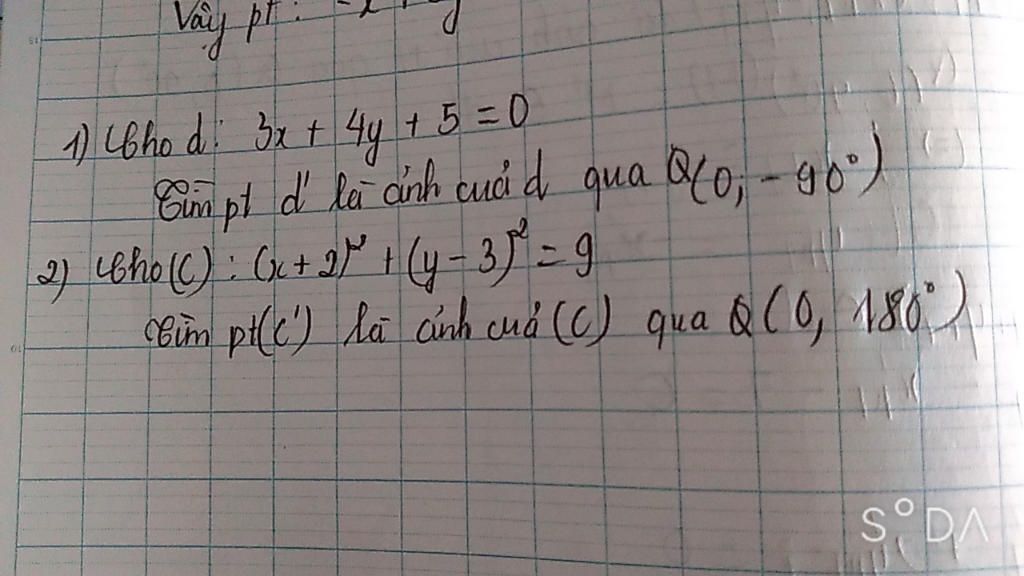 Vậy pt:
1) Cho d: 3x + 4y + 5 = 0
Tìm pt d' là ảnh của d qua Q(0, -90°)
2) Cho (C): (x + 2)² + (y - 3)² = 9
Tìm pt (C') là ảnh của (C) qua Q(0, 180°)
S°DA